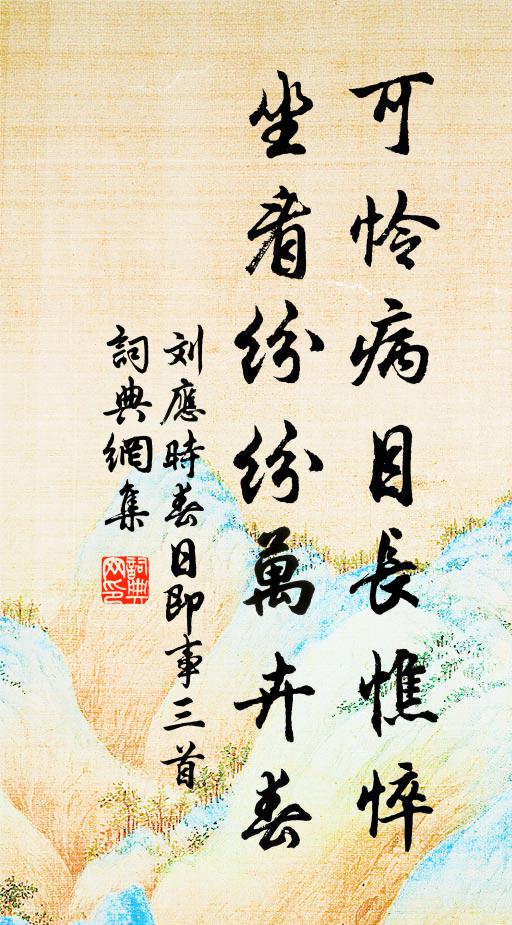 可怜病目長憔悴
坐看纷纷萬卉春
刘應時春日即事三首
詞典網集
詞典网印